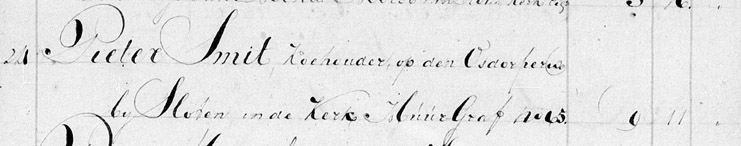 24 Pieter Smit, Koehouder, op den Osdorper
by Sloten in de Kerk Muur Graf No 15. 9 11 .